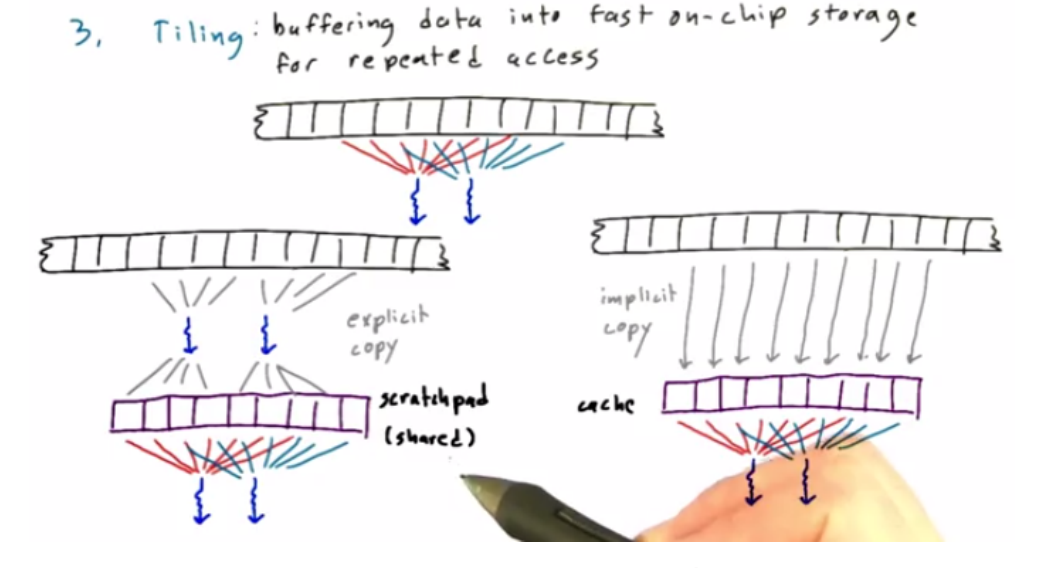 3. Tiling: buffering data into fast on-chip storage
for repeated access
explicit
copy
scratchpad
(shared)
implicit
copy
cache